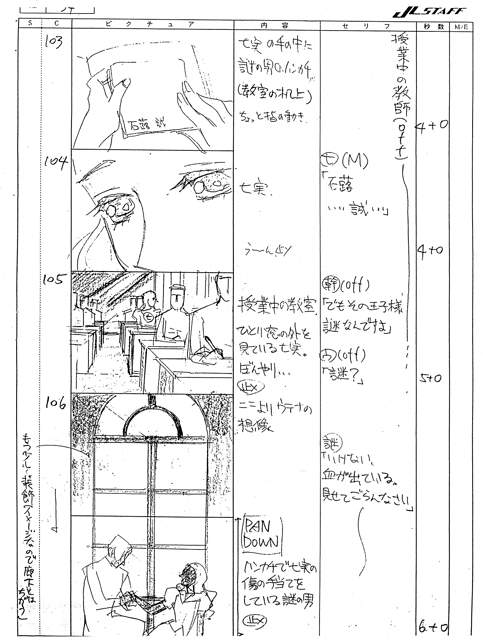 J.C.STAFF
S
C
ピクチュア
内容
セリフ
秒数
M/E
授業中の教師(off)
103
石蕗 誠
七実の手の中に
謎の男のハンカチ
(教室の机上)
ちょっと指の動き
4+0
104
七実
うーん止メ
七(M)
「石蕗
…誠…」
4+0
105
授業中の教室
ひとり窓の外を
見ている七実。
ぼんやり…
止メ
幹(off)
「でもその王子様
謎なんですよ」
(off)
「謎?」
5+0
106
ここよりウテナの
想像
PAN
DOWN
ハンカチで七実の
傷の手当てを
している謎の男
止メ
誰
「いけない、
血が出ている。
見せてごらんなさい」
6+0